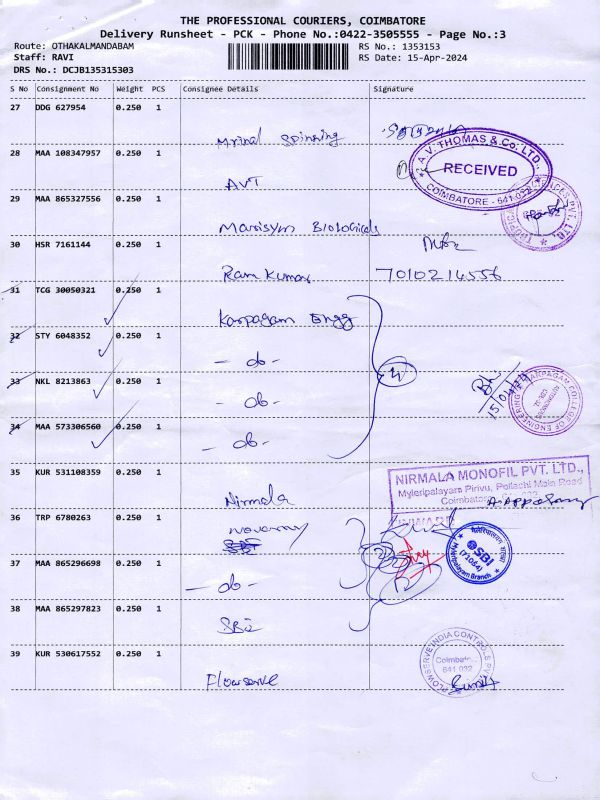 THE PROFESSIONAL COURIERS, COIMBATORE
Delivery Runsheet - PCK - Phone No.:0422-3505555 - Page No.:3
Route: OTHAKALMANDABAM
RS No.: 1353153
Staff: RAVI
RS Date: 15-Apr-2024
DRS No.: DCJB135315303
S No Consignment No Weight PCS Consignee Details Signature
27 DDG 627954 0.250 1
Mrinal Spinning
28 MAA 108347957 0.250 1
AVT
A.V. THOMAS & Co. LTD.,
RECEIVED
COIMBATORE - 641 032
29 MAA 865327556 0.250 1
Marisym Biologicals
30 HSR 7161144 0.250 1
Ram Kumar
7010214556
31 TCG 30050321 0.250 1
Karpagam Engg
32 STY 6048352 0.250 1
- do -
33 NKL 8213863 0.250 1
- do -
4
15/04/24
KARPAGAM COLLEGE OF ENGINEERING
34 MAA 573306560 0.250 1
- do -
35 KUR 531108359 0.250 1
Nirmala
NIRMALA MONOFIL PVT. LTD.,
Myleripalayam Pirivu, Pollachi Main Road
INWARD
36 TRP 6780263 0.250 1
SBI
(71084)
Myleripalayam Branch
37 MAA 865296698 0.250 1
- do -
38 MAA 865297823 0.250 1
SBI
39 KUR 530617552 0.250 1
Flowserve
FLOWSERVE INDIA CONTROLS PVT.
641 032